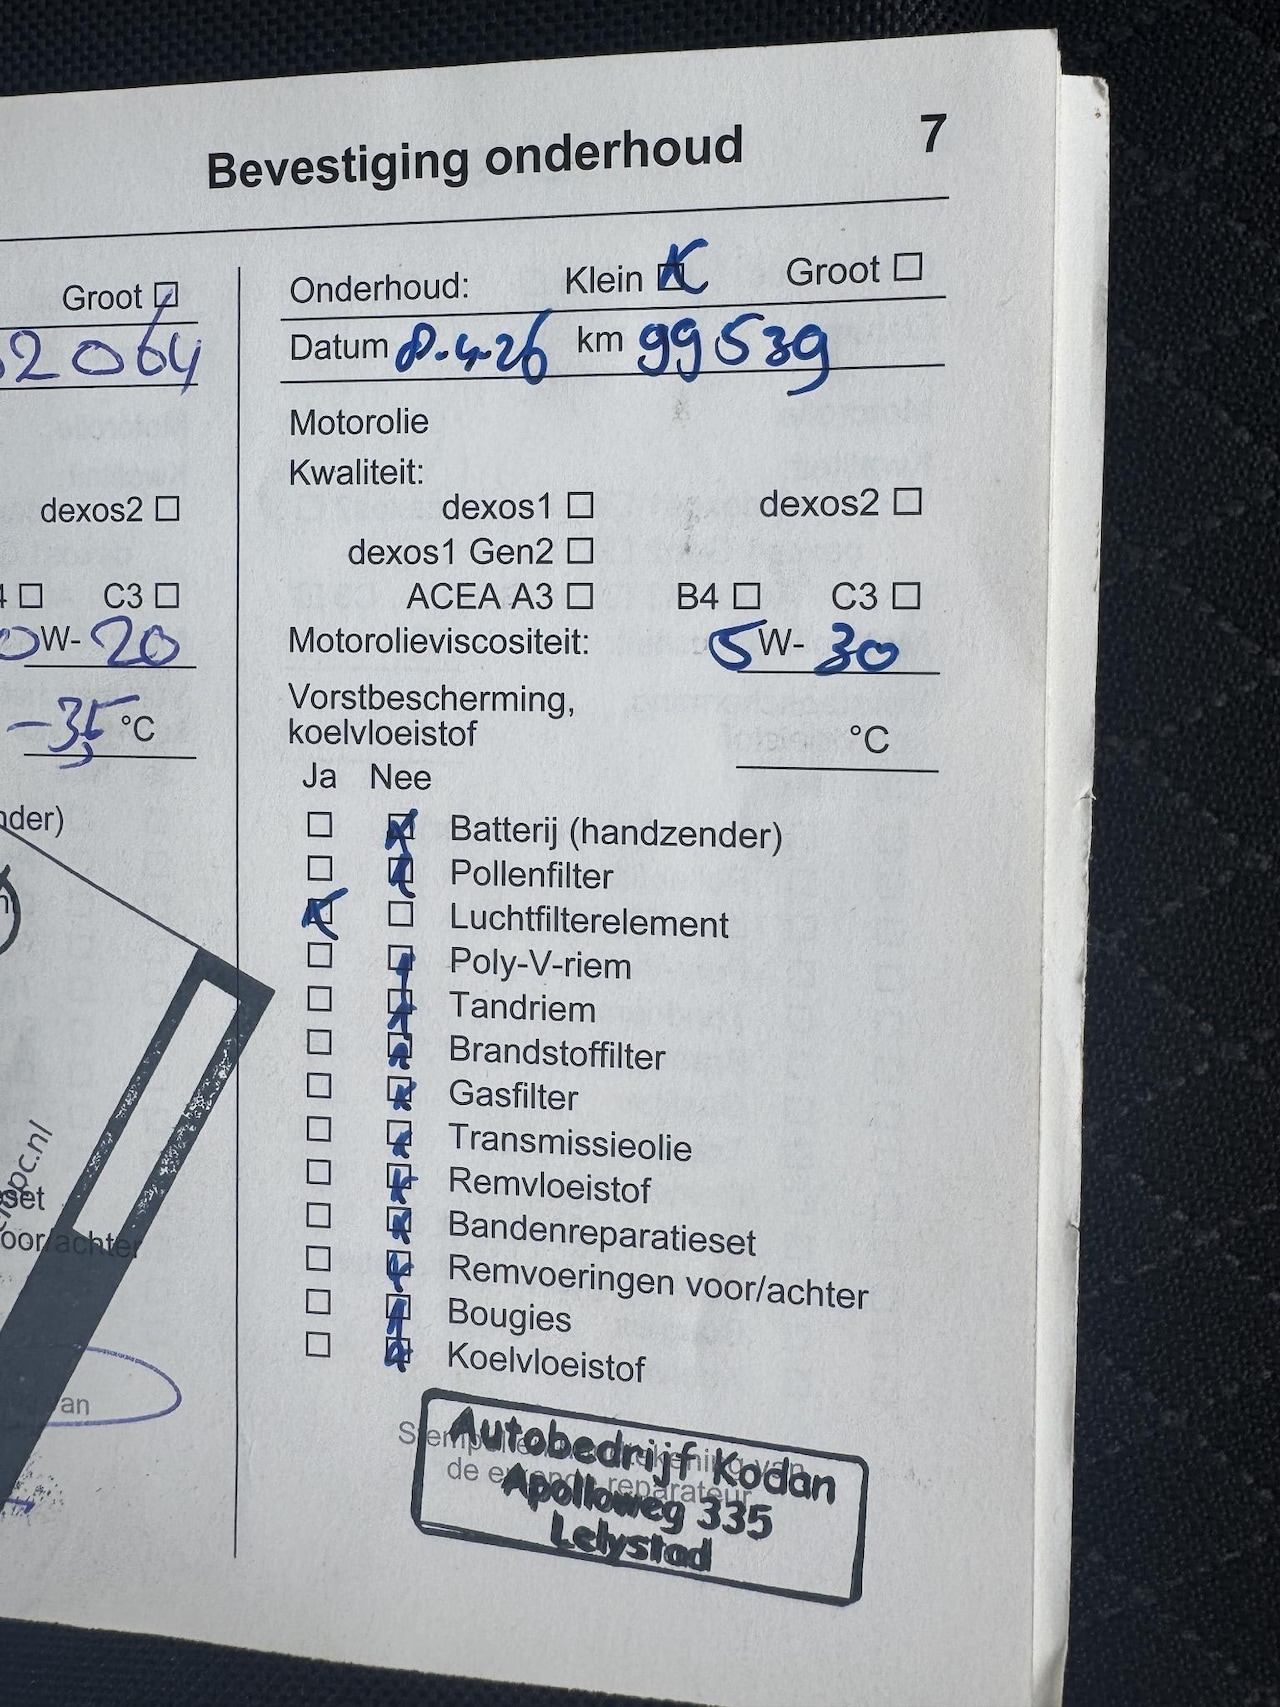 Bevestiging onderhoud 7
Groot
2064
dexos2
4 C3
0W-20
-35 °C
nder)
pc.nl
set
oor/achter
an
Onderhoud: Klein Groot
Datum 8.4.26 km 99539
Motorolie
Kwaliteit:
dexos1 dexos2
dexos1 Gen2
ACEA A3 B4 C3
Motorolieviscositeit: 5W-30
Vorstbescherming,
koelvloeistof °C
Ja Nee
Batterij (handzender)
Pollenfilter
Luchtfilterelement
Poly-V-riem
Tandriem
Brandstoffilter
Gasfilter
Transmissieolie
Remvloeistof
Bandenreparatieset
Remvoeringen voor/achter
Bougies
Koelvloeistof
Autobedrijf Kodan
Apolloweg 335
Lelystad